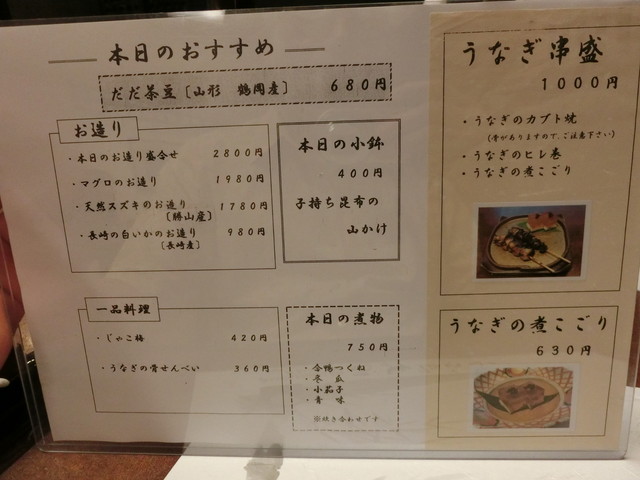 本日のおすすめ
だだ茶豆〔山形 鶴岡産〕 680円
お造り
・本日のお造り盛合せ 2800円
・マグロのお造り 1980円
・天然スズキのお造り 1780円
〔勝山産〕
・長崎の白いかのお造り 980円
〔長崎産〕
本日の小鉢
400円
子持ち昆布の
山かけ
一品料理
・じゃこ梅 420円
・うなぎの骨せんべい 360円
本日の煮物
750円
・合鴨つくね
・冬瓜
・小茄子
・青味
※炊き合わせです
うなぎ串盛
1000円
・うなぎのカブト焼
(骨がありますので、ご注意下さい)
・うなぎのヒレ巻
・うなぎの煮こごり
うなぎの煮こごり
630円